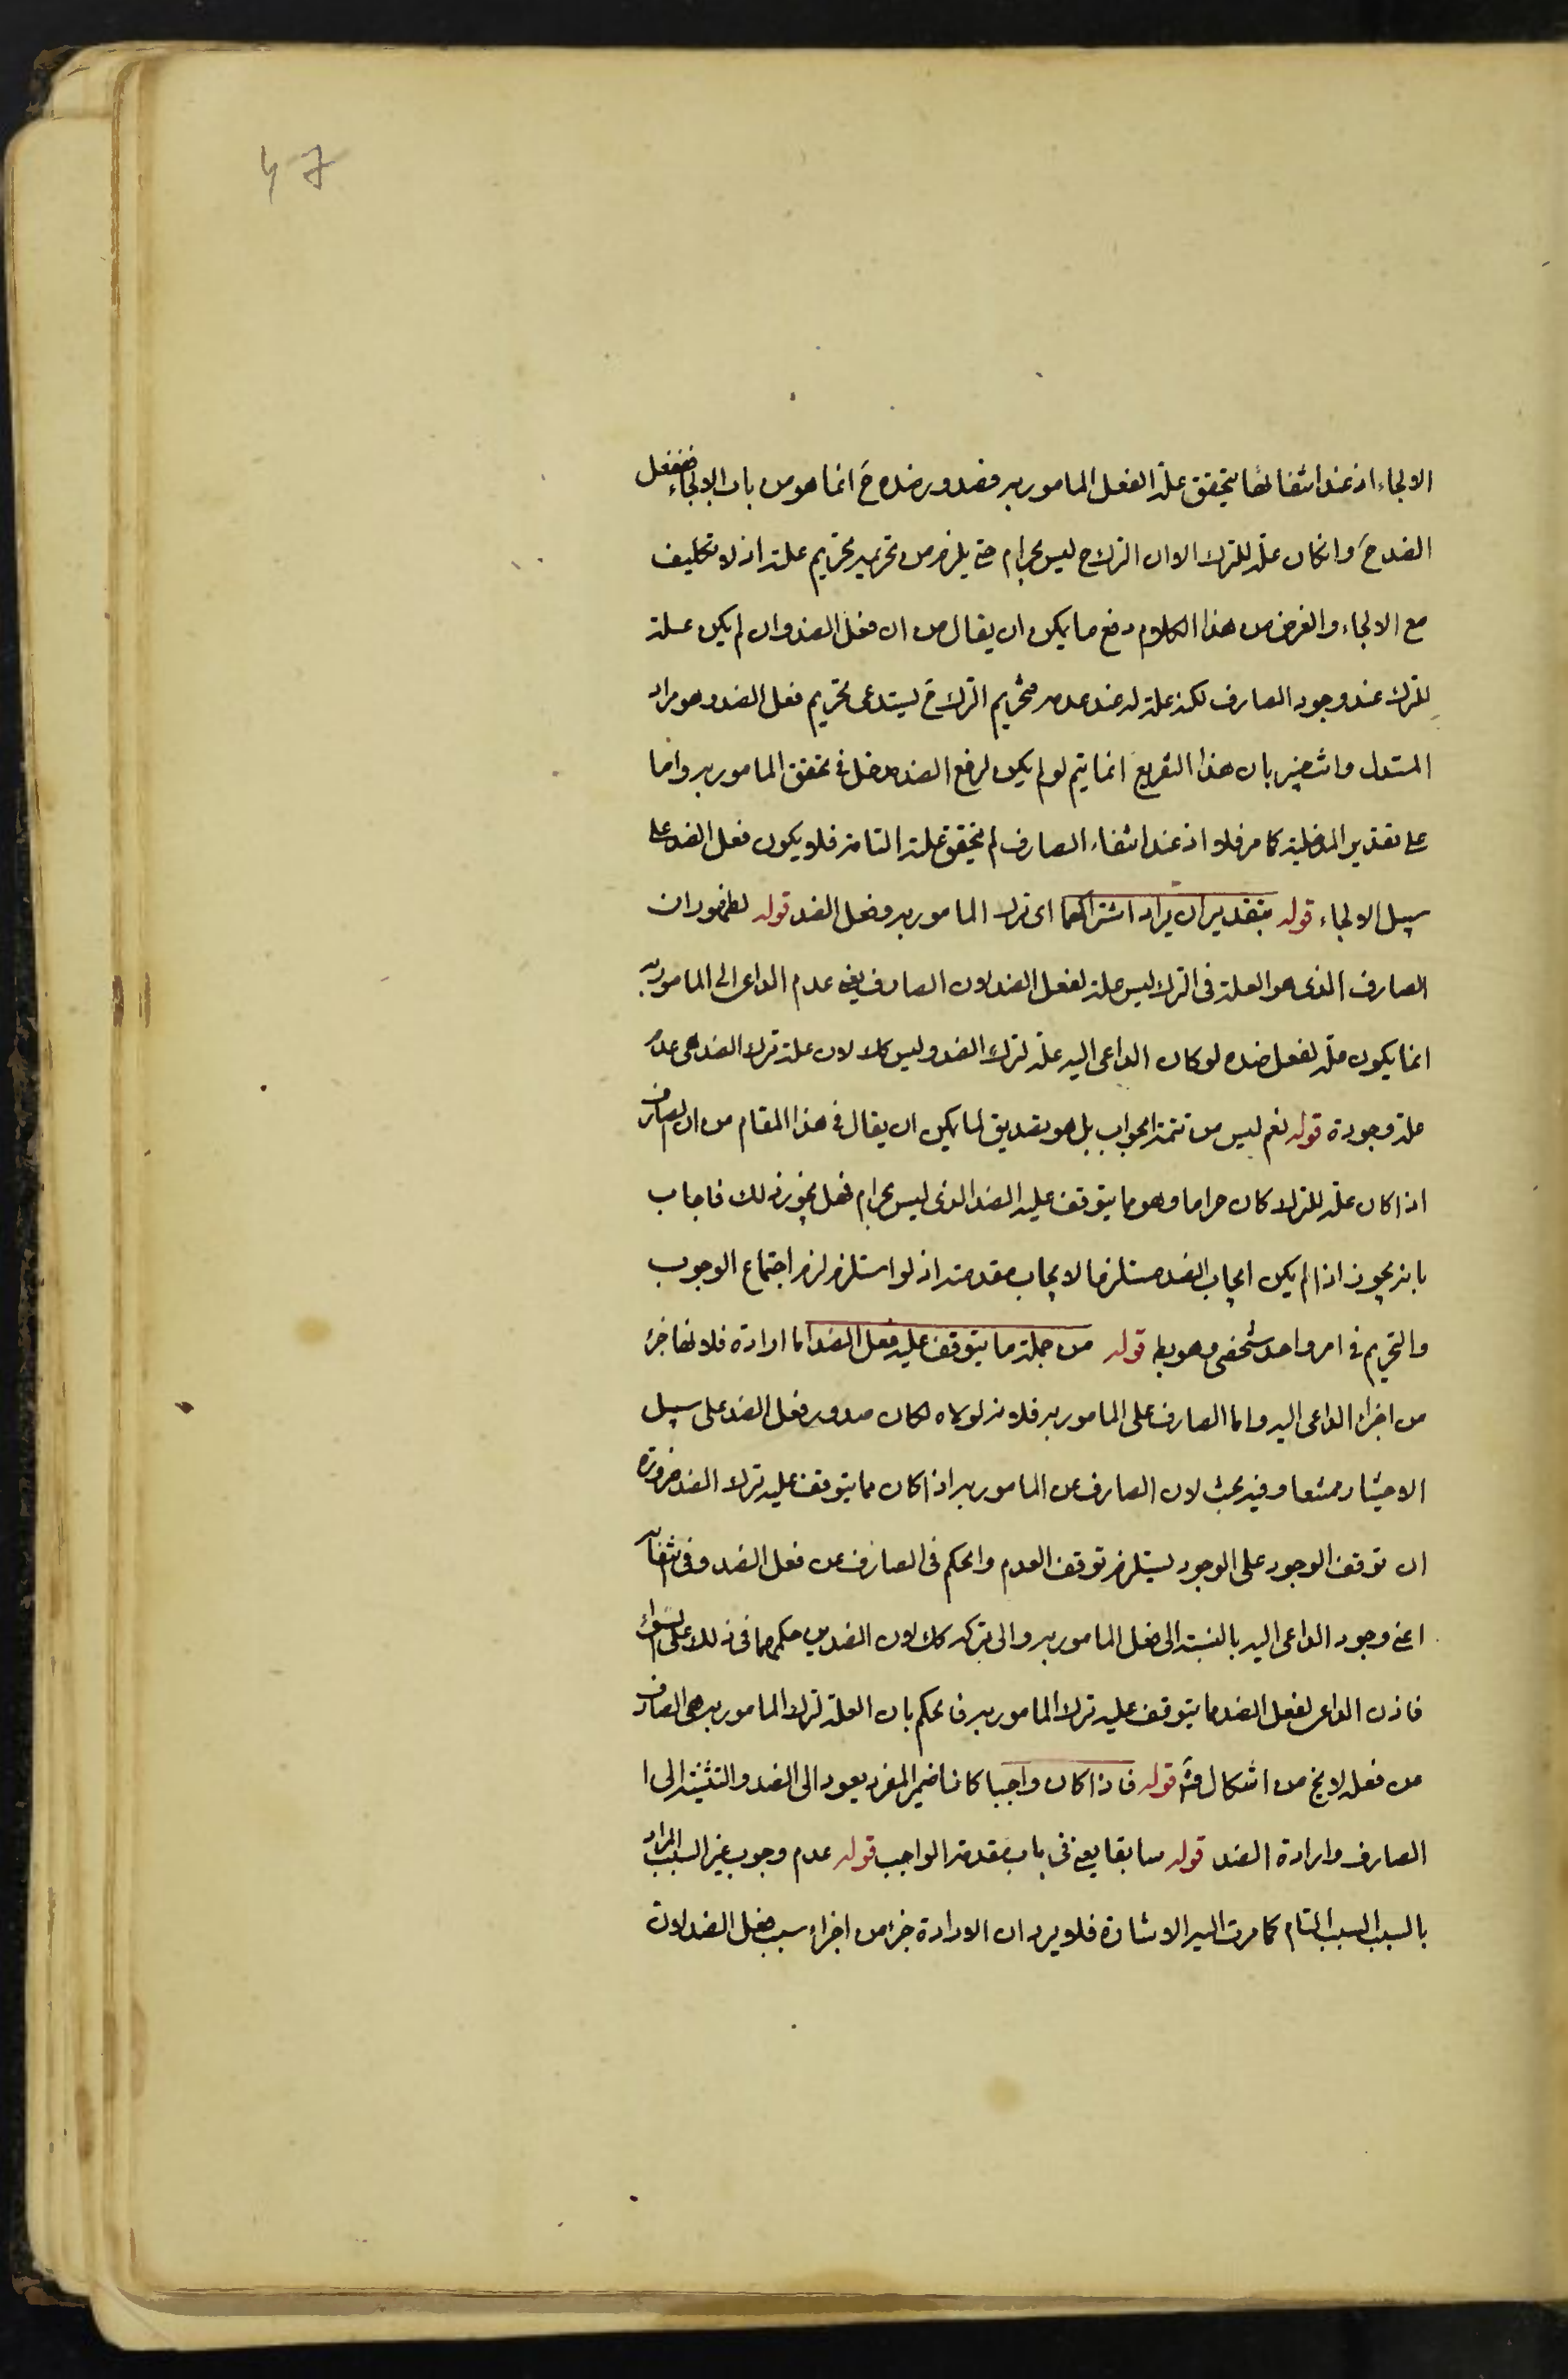 47
الالجاء اذ عند انتفائها يتحقق علة الفعل المامور به فصدور ضده ح انما هو من باب الالجاء ففعل
الضد ح وانكان علة للترك الا ان الترك ح ليس بحرام حتى يلزم من تحريمه تحريم علته اذ لا تكليف
مع الالجاء والغرض من هذا الكلام دفع ما يمكن ان يقال من ان فعل الضد وان لم يكن علة
للترك عند وجود الصارف لكنه علة له عند عدمه فتحريم الترك ح يستدعى تحريم فعل الضد وهو مراد
المستدل وانت خبير بان هذا التفريع انما يتم لو لم يكن لرفع الضد مدخل فى تحقق المامور به واما
على تقدير المدخلية كما مر فلا اذ عند انتفاء الصارف لم يتحقق علته التامة فلا يكون فعل الضد على
سبيل الالجاء قوله بتقدير ان يراد اشتراكهما اى ترك المامور به وفعل الضد قوله لظهور ان
الصارف الذى هو العلة فى الترك ليس علة لفعل الضد لان الصارف يعنى عدم الداعى الى المامور به
انما يكون علة لفعل ضده لو كان الداعى اليه علة لترك الضد وليس كك لان علة ترك الضد هى عدم
علة وجوده قوله نعم ليس من تتمة الجواب بل هو تصديق لما يمكن ان يقال فى هذا المقام من ان الصارف
اذا كان علة للترك كان حراما وهو ما يتوقف عليه الضد الذى ليس بحرام فهل يجوز ذلك فاجاب
بانه يجوز اذا لم يكن ايجاب الضد مستلزما لايجاب مقدمته اذ لو استلزم لزم اجتماع الوجوب
والتحريم فى امر واحد شخصى وهو بط قوله من جملة ما يتوقف عليه فعل الضد اما ارادة فلانها جزء
من اجزاء الداعى اليه واما الصارف على المامور به فلانه لولاه لكان صدور فعل الضد على سبيل
الاختيار ممتنعا وفيه بحث لان الصارف عن المامور به اذا كان مما يتوقف عليه ترك الضد ضرورة
ان توقف الوجود على الوجود يستلزم توقف العدم والحكم فى الصارف عن فعل الضد وفى انتفائه
اعنى وجود الداعى اليه بالنسبة الى فعل المامور به والى تركه كك لان الضدين حكمهما فى ذلك على السواء
فاذن الداعى لفعل الضد ما يتوقف عليه ترك المامور به فالحكم بان العلة لترك المامور به هى الصارف
من فعله لا يخ من اشكال فتأ قوله فاذا كان واجبا كانا ضمير المفرد يعود الى الضد والتثنية الى ا
الصارف وارادة الضد قوله سابقا يعنى فى باب مقدمة الواجب قوله عدم وجوب غير السبب المراد
بالسبب السبب التام كما مرت اليه الاشارة فلا يرد ان الارادة جزء من اجزاء سبب فعل الضد لان